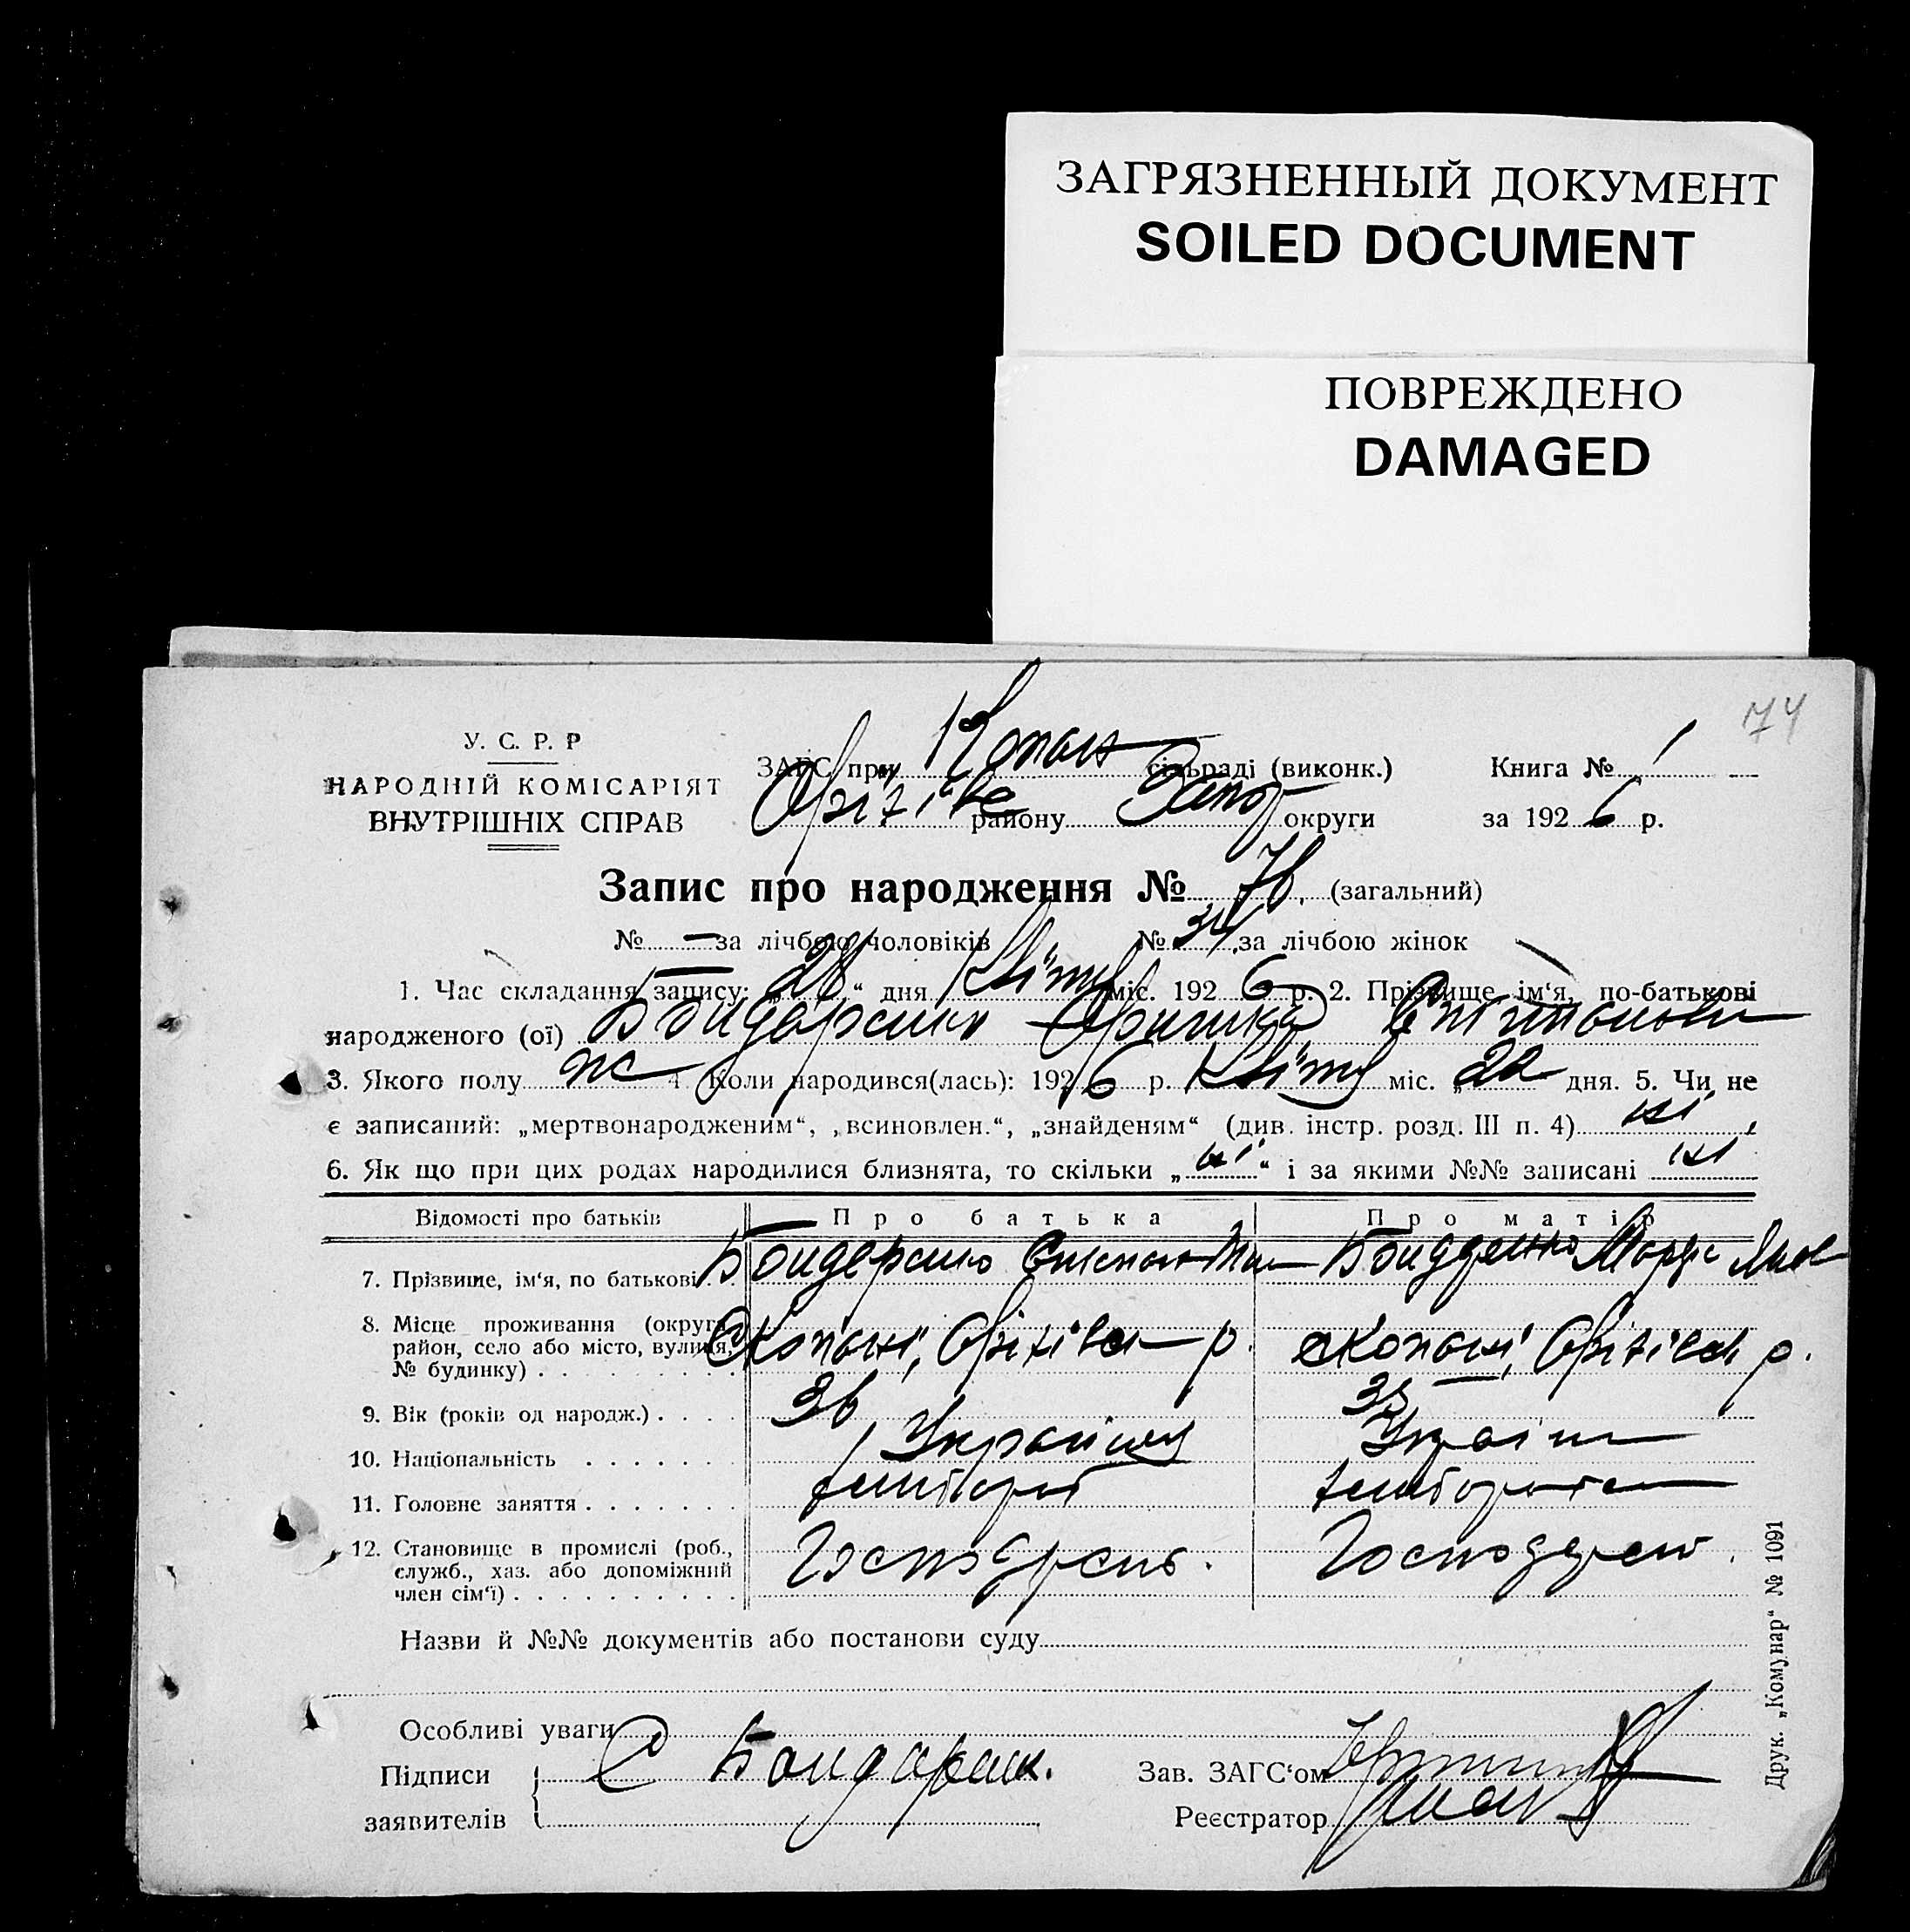 ЗАГРЯЗНЕННЫЙ ДОКУМЕНТ
SOILED DOCUMENT
ПОВРЕЖДЕНО
DAMAGED
74
У. С. Р. Р
НАРОДНІЙ КОМІСАРІЯТ
ВНУТРІШНІХ СПРАВ
ЗАГС при Копан сільраді (виконк.) Книга № 1
Оріхів району Запор округи за 1926 р.
Запис про народження № 76 (загальний)
№ — за лічбою чоловіків № 34 за лічбою жінок
1. Час складання запису: „28“ дня Квітн міс. 1926 р. 2. Прізвище, ім‘я, по-батькові
народженого (ої) Бондаренко
3. Якого полу ж 4. Коли народився(лась): 1926 р. Квітн міс. „22 дня. 5. Чи не
є записаний: „мертвонародженим“, „всиновлен.“, „знайденям“ (див. інстр. розд. III п. 4) ні
6. Як що при цих родах народилися близнята, то скільки „ні“ і за якими №№ записані ні
Відомості про батьків Про батька Про матір
7. Прізвище, ім‘я, по батькові Бондаренко Степан Бондаренко
8. Місце проживання (округа,
район, село або місто, вулиця,
№ будинку) . с Копані, Оріхівськ р. с Копані, Оріхівськ р.
9. Вік (років од народж.) . 36 33
10. Національність Українец Україн
11. Головне заняття .
12. Становище в промислі (роб.,
служб., хаз. або допоміжний
член сім‘ї) .
Назви й №№ документів або постанови суду
Особливі уваги
Підписи С Бондаренк. Зав. ЗАГС‘ом
заявителів Реєстратор
Друк. „Комунар“ № 1091